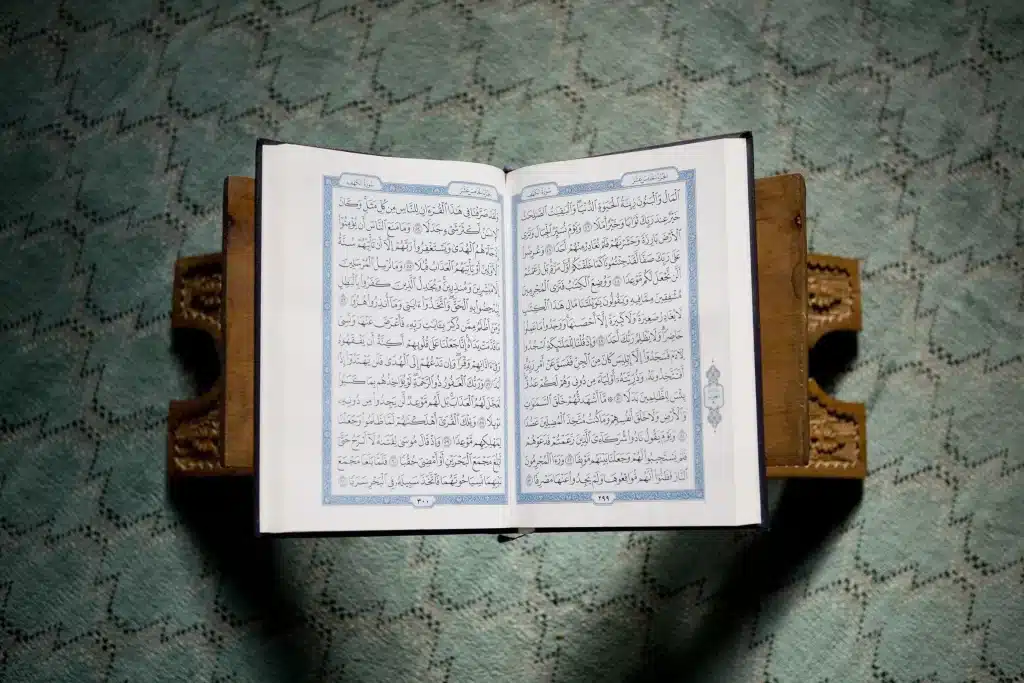 الجزء الخامس عشر
سورة الكهف
ٱلْمَالُ وَٱلْبَنُونَ زِينَةُ ٱلْحَيَوٰةِ ٱلدُّنْيَا وَٱلْبَـٰقِيَـٰتُ ٱلصَّـٰلِحَـٰتُ
خَيْرٌ عِندَ رَبِّكَ ثَوَابًا وَخَيْرٌ أَمَلًا ٤٦ وَيَوْمَ نُسَيِّرُ ٱلْجِبَالَ وَتَرَى
ٱلْأَرْضَ بَارِزَةً وَحَشَرْنَـٰهُمْ فَلَمْ نُغَادِرْ مِنْهُمْ أَحَدًا ٤٧ وَعُرِضُوا۟
عَلَىٰ رَبِّكَ صَفًّا لَّقَدْ جِئْتُمُونَا كَمَا خَلَقْنَـٰكُمْ أَوَّلَ مَرَّةٍۭ بَلْ زَعَمْتُمْ
أَلَّن نَّجْعَلَ لَكُم مَّوْعِدًا ٤٨ وَوُضِعَ ٱلْكِتَـٰبُ فَتَرَى ٱلْمُجْرِمِينَ
مُشْفِقِينَ مِمَّا فِيهِ وَيَقُولُونَ يَـٰوَيْلَتَنَا مَالِ هَـٰذَا ٱلْكِتَـٰبِ
لَا يُغَادِرُ صَغِيرَةً وَلَا كَبِيرَةً إِلَّآ أَحْصَىٰهَا وَوَجَدُوا۟ مَا عَمِلُوا۟
حَاضِرًا وَلَا يَظْلِمُ رَبُّكَ أَحَدًا ٤٩ وَإِذْ قُلْنَا لِلْمَلَـٰٓئِكَةِ ٱسْجُدُوا۟
لِـَٔادَمَ فَسَجَدُوٓا۟ إِلَّآ إِبْلِيسَ كَانَ مِنَ ٱلْجِنِّ فَفَسَقَ عَنْ أَمْرِ رَبِّهِۦٓ
أَفَتَتَّخِذُونَهُۥ وَذُرِّيَّتَهُۥٓ أَوْلِيَآءَ مِن دُونِى وَهُمْ لَكُمْ عَدُوٌّۢ
بِئْسَ لِلظَّـٰلِمِينَ بَدَلًا ٥٠ ۞ مَّآ أَشْهَدتُّهُمْ خَلْقَ ٱلسَّمَـٰوَٰتِ
وَٱلْأَرْضِ وَلَا خَلْقَ أَنفُسِهِمْ وَمَا كُنتُ مُتَّخِذَ ٱلْمُضِلِّينَ عَضُدًا
٥١ وَيَوْمَ يَقُولُ نَادُوا۟ شُرَكَآءِىَ ٱلَّذِينَ زَعَمْتُمْ فَدَعَوْهُمْ
فَلَمْ يَسْتَجِيبُوا۟ لَهُمْ وَجَعَلْنَا بَيْنَهُم مَّوْبِقًا ٥٢ وَرَءَا ٱلْمُجْرِمُونَ
ٱلنَّارَ فَظَنُّوٓا۟ أَنَّهُم مُّوَاقِعُوهَا وَلَمْ يَجِدُوا۟ عَنْهَا مَصْرِفًا ٥٣
٢٩٩
الجزء الخامس عشر
سورة الكهف
وَلَقَدْ صَرَّفْنَا فِى هَـٰذَا ٱلْقُرْءَانِ لِلنَّاسِ مِن كُلِّ مَثَلٍ وَكَانَ
ٱلْإِنسَـٰنُ أَكْثَرَ شَىْءٍ جَدَلًا ٥٤ وَمَا مَنَعَ ٱلنَّاسَ أَن يُؤْمِنُوٓا۟
إِذْ جَآءَهُمُ ٱلْهُدَىٰ وَيَسْتَغْفِرُوا۟ رَبَّهُمْ إِلَّآ أَن تَأْتِيَهُمْ سُنَّةُ
ٱلْأَوَّلِينَ أَوْ يَأْتِيَهُمُ ٱلْعَذَابُ قُبُلًا ٥٥ وَمَا نُرْسِلُ ٱلْمُرْسَلِينَ
إِلَّا مُبَشِّرِينَ وَمُنذِرِينَ وَيُجَـٰدِلُ ٱلَّذِينَ كَفَرُوا۟ بِٱلْبَـٰطِلِ
لِيُدْحِضُوا۟ بِهِ ٱلْحَقَّ وَٱتَّخَذُوٓا۟ ءَايَـٰتِى وَمَآ أُنذِرُوا۟ هُزُوًا ٥٦
وَمَنْ أَظْلَمُ مِمَّن ذُكِّرَ بِـَٔايَـٰتِ رَبِّهِۦ فَأَعْرَضَ عَنْهَا وَنَسِىَ
مَا قَدَّمَتْ يَدَاهُ إِنَّا جَعَلْنَا عَلَىٰ قُلُوبِهِمْ أَكِنَّةً أَن يَفْقَهُوهُ
وَفِىٓ ءَاذَانِهِمْ وَقْرًا وَإِن تَدْعُهُمْ إِلَى ٱلْهُدَىٰ فَلَن يَهْتَدُوٓا۟ إِذًا
أَبَدًا ٥٧ وَرَبُّكَ ٱلْغَفُورُ ذُو ٱلرَّحْمَةِ لَوْ يُؤَاخِذُهُم بِمَا كَسَبُوا۟
لَعَجَّلَ لَهُمُ ٱلْعَذَابَ بَل لَّهُم مَّوْعِدٌ لَّن يَجِدُوا۟ مِن دُونِهِۦ
مَوْئِلًا ٥٨ وَتِلْكَ ٱلْقُرَىٰٓ أَهْلَكْنَـٰهُمْ لَمَّا ظَلَمُوا۟ وَجَعَلْنَا
لِمَهْلِكِهِم مَّوْعِدًا ٥٩ وَإِذْ قَالَ مُوسَىٰ لِفَتَىٰهُ لَآ أَبْرَحُ حَتَّىٰٓ
أَبْلُغَ مَجْمَعَ ٱلْبَحْرَيْنِ أَوْ أَمْضِىَ حُقُبًا ٦٠ فَلَمَّا بَلَغَا مَجْمَعَ
بَيْنِهِمَا نَسِيَا حُوتَهُمَا فَٱتَّخَذَ سَبِيلَهُۥ فِى ٱلْبَحْرِ سَرَبًا ٦١
٣٠٠